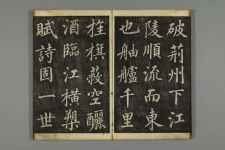 破荊州下江
陵順流而東
也舳艫千里
旌旗蔽空釃
酒臨江橫槊
賦詩固一世